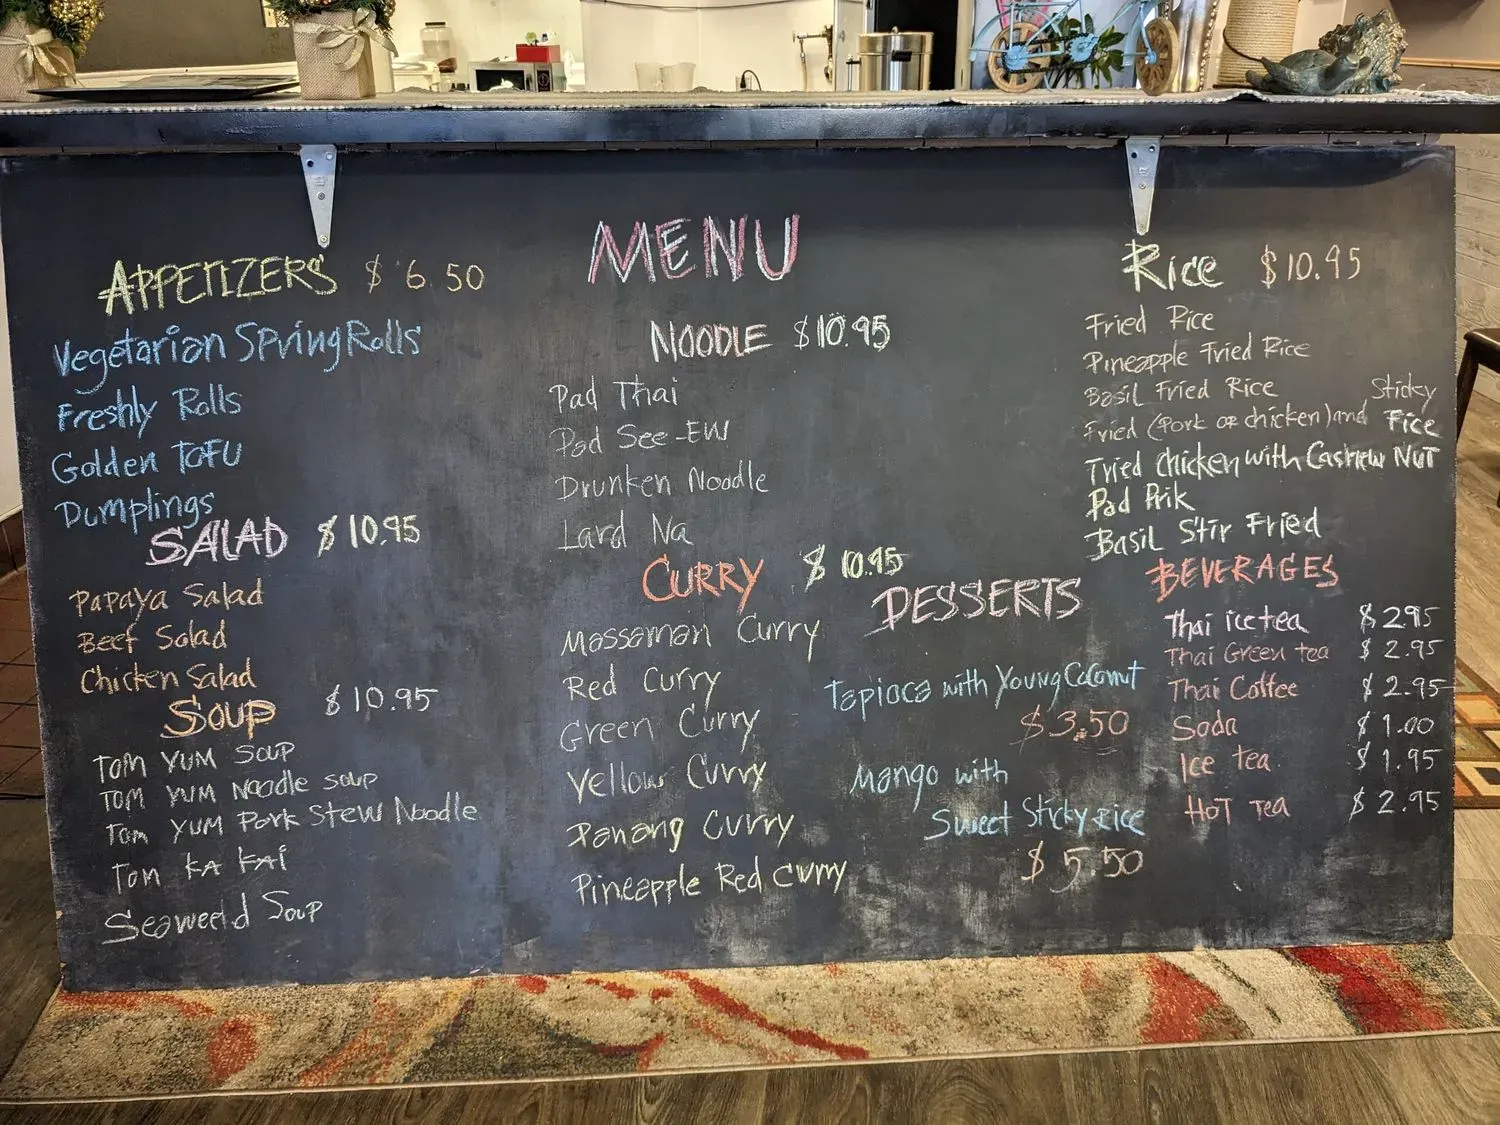 MENU
APPETIZERS $ 6.50
Vegetarian Spring Rolls
Freshly Rolls
Golden TOFU
Dumplings
SALAD $10.95
Papaya Salad
Beef Salad
Chicken Salad
Soup $10.95
TOM YUM SOUP
TOM YUM Noodle soup
Tom YUM Pork Stew Noodle
Tom KA KAI
Seaweed Soup
NOODLE $10.95
Pad Thai
Pad See-EW
Drunken Noodle
Lard Na
CURRY $10.95
Massaman Curry
Red Curry
Green Curry
Yellow Curry
Panang Curry
Pineapple Red Curry
DESSERTS
Tapioca with Young Coconut
$3.50
Mango with
Sweet Sticky Rice
$5.50
Rice $10.95
Fried Rice
Pineapple Fried Rice
Basil Fried Rice
Fried (Pork or chicken) and Sticky Rice
Fried Chicken with Cashew NUT
Pad Prik
Basil Stir Fried
BEVERAGES
Thai ice tea $2.95
Thai Green tea $2.95
Thai Coffee $2.95
Soda $1.00
Ice tea $1.95
HOT TEA $2.95